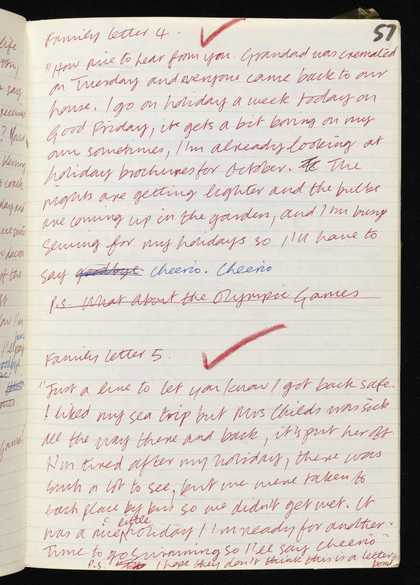 57
Family letter 4.
"How nice to hear from you. Grandad was cremated
on Tuesday and everyone came back to our
house. I go on holiday a week today on
Good Friday, it gets a bit boring on my
own sometimes, I'm already looking at
holiday brochures for October. The
nights are getting lighter and the bulbs
are coming up in the garden, and I'm busy
sewing for my holidays so I'll have to
say goodbye cheerio. Cheerio
P.S. What about the Olympic Games
Family letter 5.
"Just a line to let you know I got back safe.
I liked my sea trip but Mrs Childs was sick
all the way there and back, it's put her off
I'm tired after my holiday, there was
such a lot to see, but we were taken to
each place by bus so we didn't get wet. It
was a nice little holiday! I'm ready for another.
Time to go swimming so I'll say cheerio
P.S. I hope they don't think this is a letter